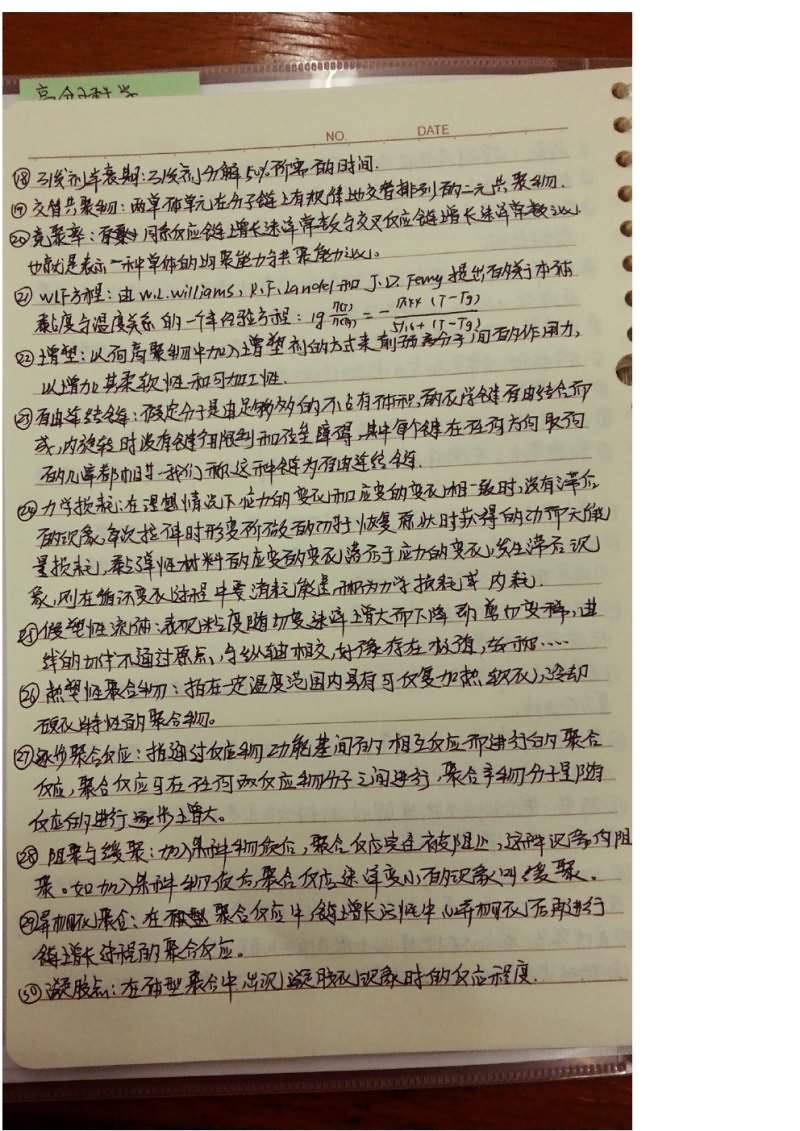 高分子科学
NO. DATE
⑱引发剂半衰期:引发剂分解50%所需的时间.
⑲交替共聚物:两单体单元在分子链上有规律地交替排列的二元共聚物.
⑳竞聚率:同系反应链增长速率常数与交叉反应链增长速率常数之比.
也就是表示一种单体的均聚能力与共聚能力之比。
㉑WLF方程:由W.L.Williams, R.F.Landel和J.D.Ferry提出的关于本体
黏度与温度关系的一个半经验方程:lg η(T)/η(Tg) = - 17.44 (T-Tg) / 51.6+(T-Tg)
㉒增塑:以向高聚物中加入增塑剂的方式来削弱高分子间的作用力,
以增加其柔软性和可加工性.
㉓自由连结链:假定分子是由足够多的不占有体积的化学键自由结合而
成,内旋转时没有键角限制和位垒障碍,其中每个键在任何方向取向
的几率都相等.我们称这种链为自由连结链.
㉔力学损耗:在理想情况下应力的变化和应变的变化相一致时,没有滞后
的现象,每次拉伸时形变所做的功等于恢复原状时获得的功而无能
量损耗,黏弹性材料的应变的变化落后于应力的变化,发生滞后现
象,则在循环变化过程中要消耗能量,称为力学损耗或内耗.
㉕假塑性流体:表观粘度随切变速率增大而下降即剪切变稀,曲
线的切线不通过原点,与纵轴相交,好像存在极值,故称……
㉖热塑性聚合物:指在一定温度范围内具有可反复加热软化、冷却
硬化特性的聚合物。
㉗逐步聚合反应:指通过反应物功能基间的相互反应而进行的聚合
反应,聚合反应可在任何两反应物分子之间进行,聚合产物分子量随
反应的进行逐步增大。
㉘阻聚与缓聚:加入某种物质后,聚合反应完全被阻止,这种现象为阻
聚。如加入某种物质后,聚合反应速率变小的现象叫缓聚。
㉙异构化聚合:在聚合反应中,链增长活性中心异构化后再进行
链增长过程的聚合反应。
㉚凝胶点:在体型聚合中,出现凝胶化现象时的反应程度.